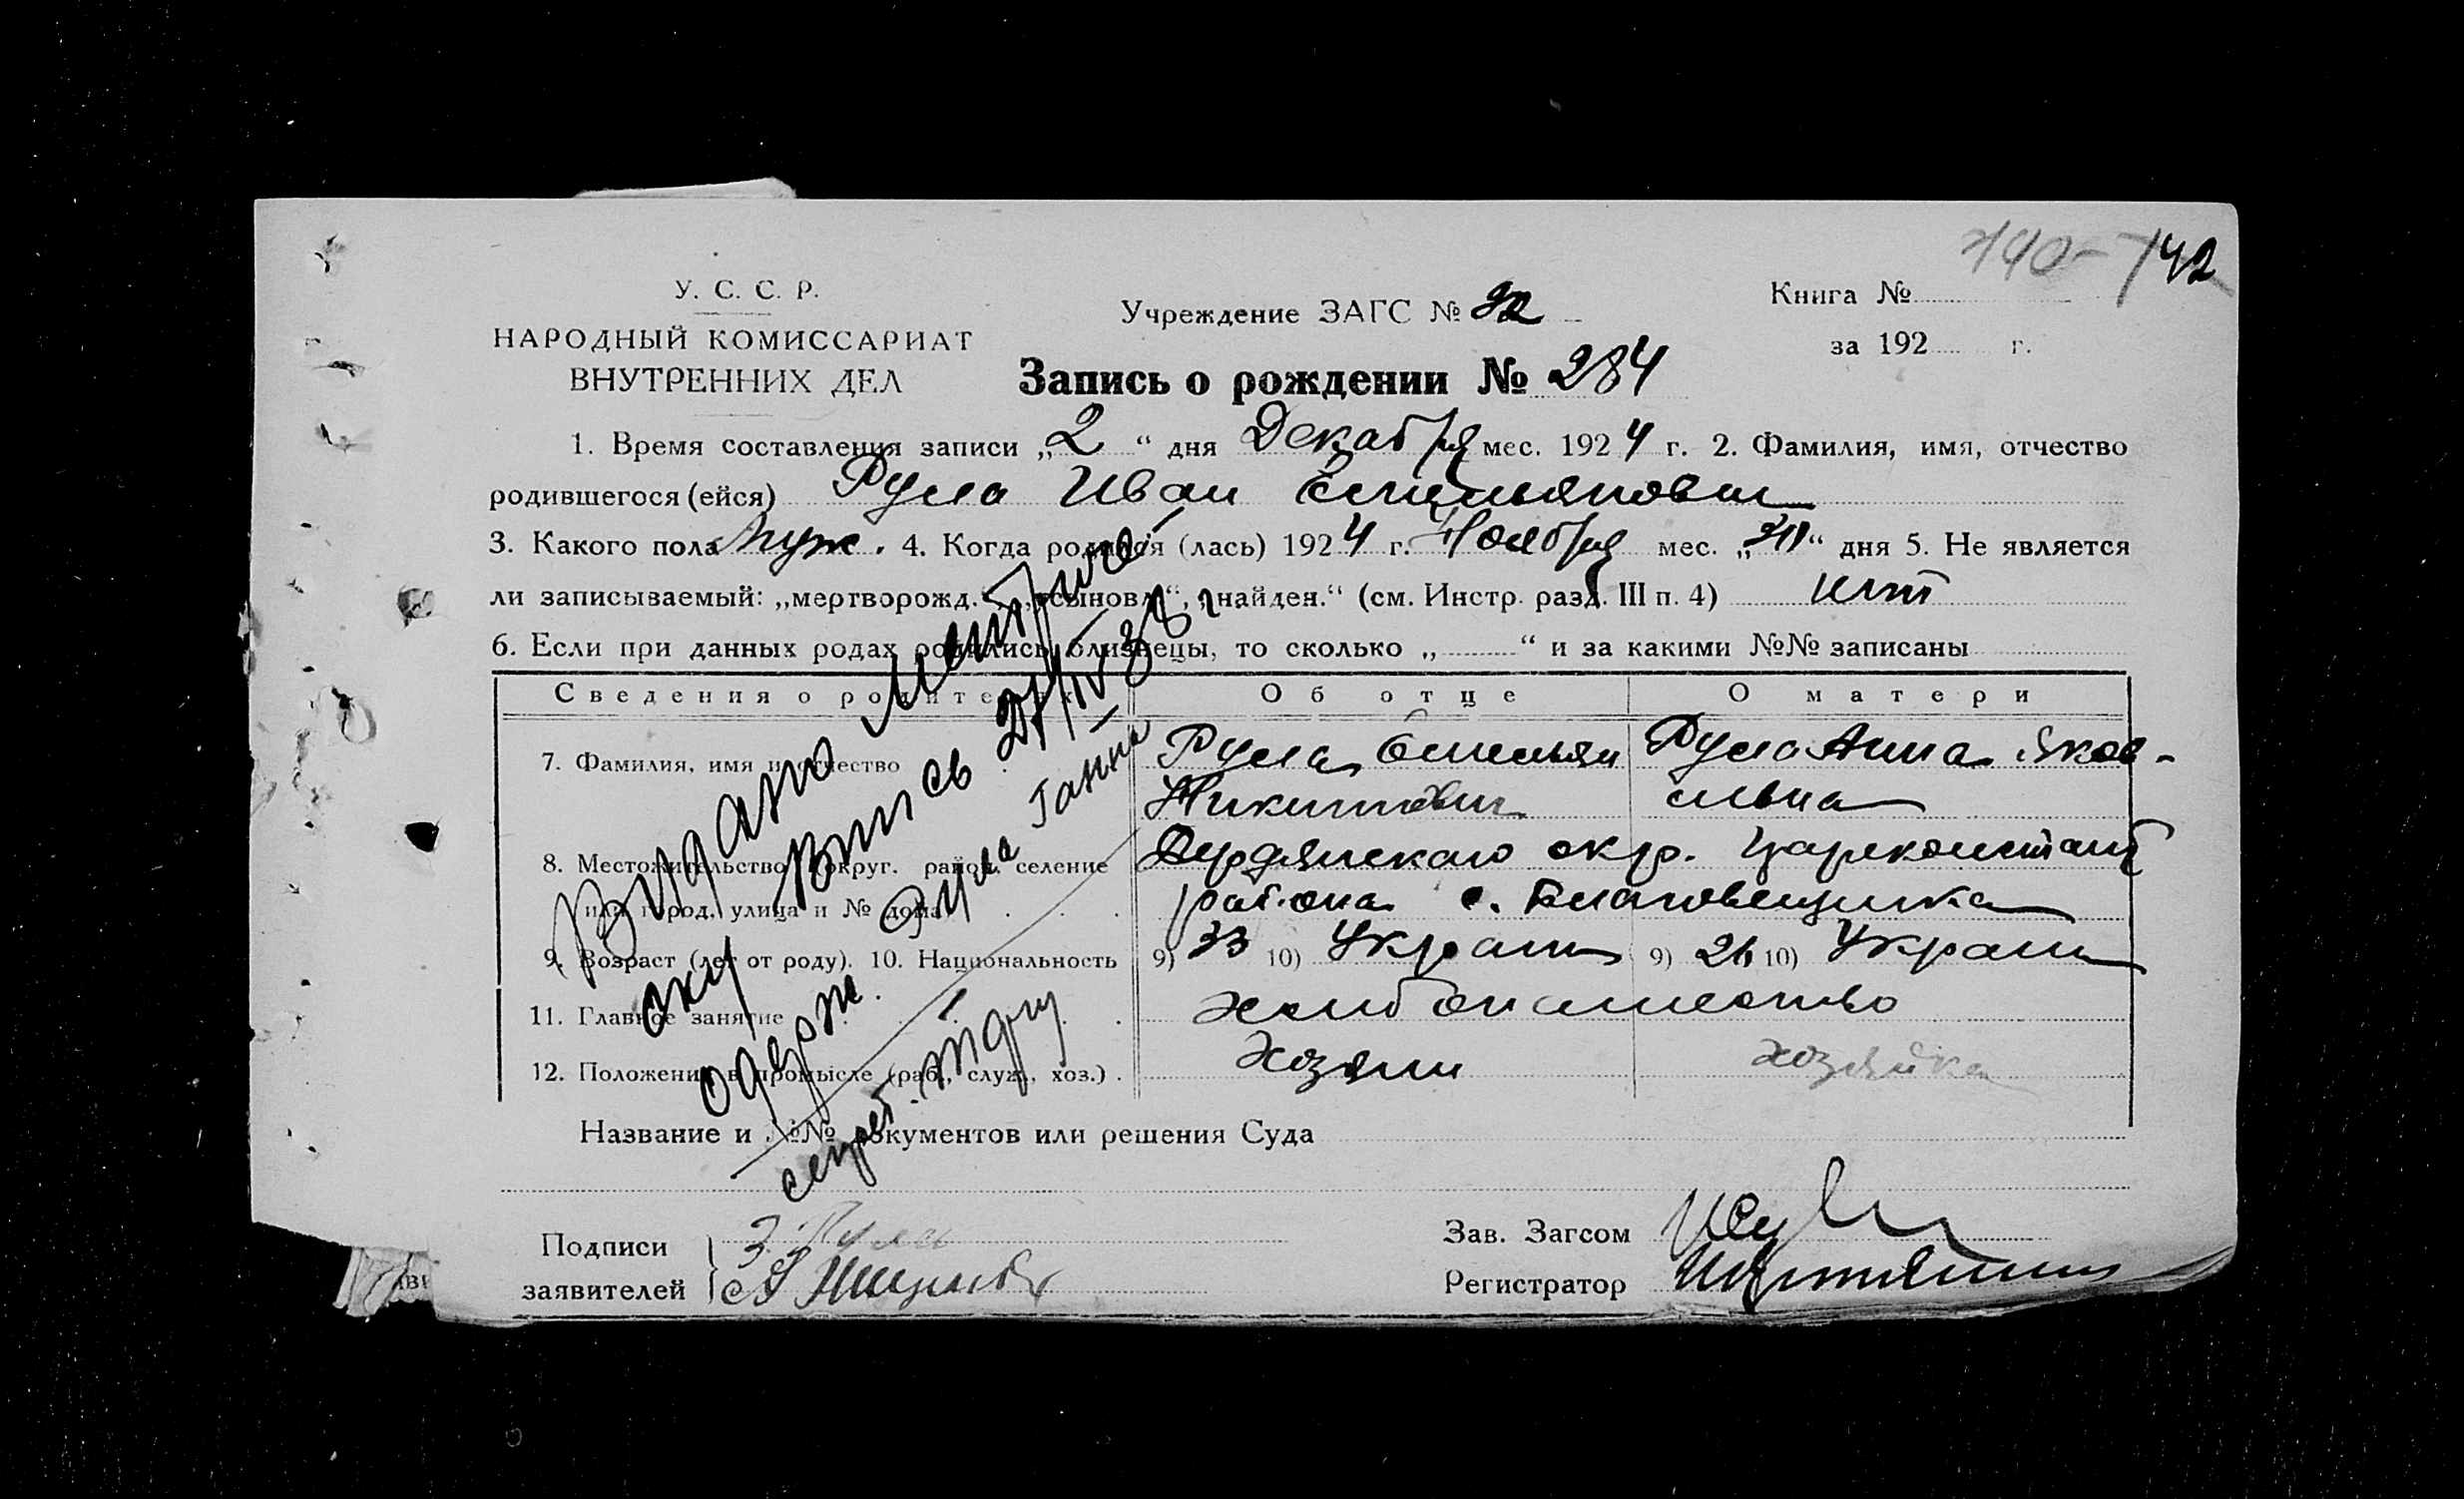 740- 742
У. С. С. Р.
НАРОДНЫЙ КОМИССАРИАТ
ВНУТРЕННИХ ДЕЛ
Учреждение ЗАГС № 92
Книга №
за 192 г.
Запись о рождении № 284
1. Время составления записи „2“ дня Декабря мес. 1924 г. 2. Фамилия, имя, отчество
родившегося (ейся) Рула Иван Емельянович
3. Какого пола Муж. 4. Когда родился (лась) 1924 г. Ноября мес. „30“ дня 5. Не является
ли записываемый: „мертворожд.“, „усыновл“, „найден.“ (см. Инстр. разд. III п. 4) нет
6. Если при данных родах родились близнецы, то сколько „ “ и за какими №№ записаны
Сведения о родителях Об отце О матери
7. Фамилия, имя и отчество Рула Емельян Рула Анна Яков-
Никитович евна
8. Местожительство (округ. район, селение Бердянскаго окр. Цареконстант
или город, улица и № дома) района с. Благовещенка
9. Возраст (лет от роду). 10. Национальность 9) 33 10) Украин 9) 26 10) Украин
11. Главное занятие хлебопашество
12. Положение в промысле (раб., служ., хоз.) хозяин хозяйка
Название и №№ документов или решения Суда
Подписи Рула
заявителей
Зав. Загсом
Регистратор
Видано метричну
випись 27/IV 38 р
Рула Ганна
одерж.
секрет.